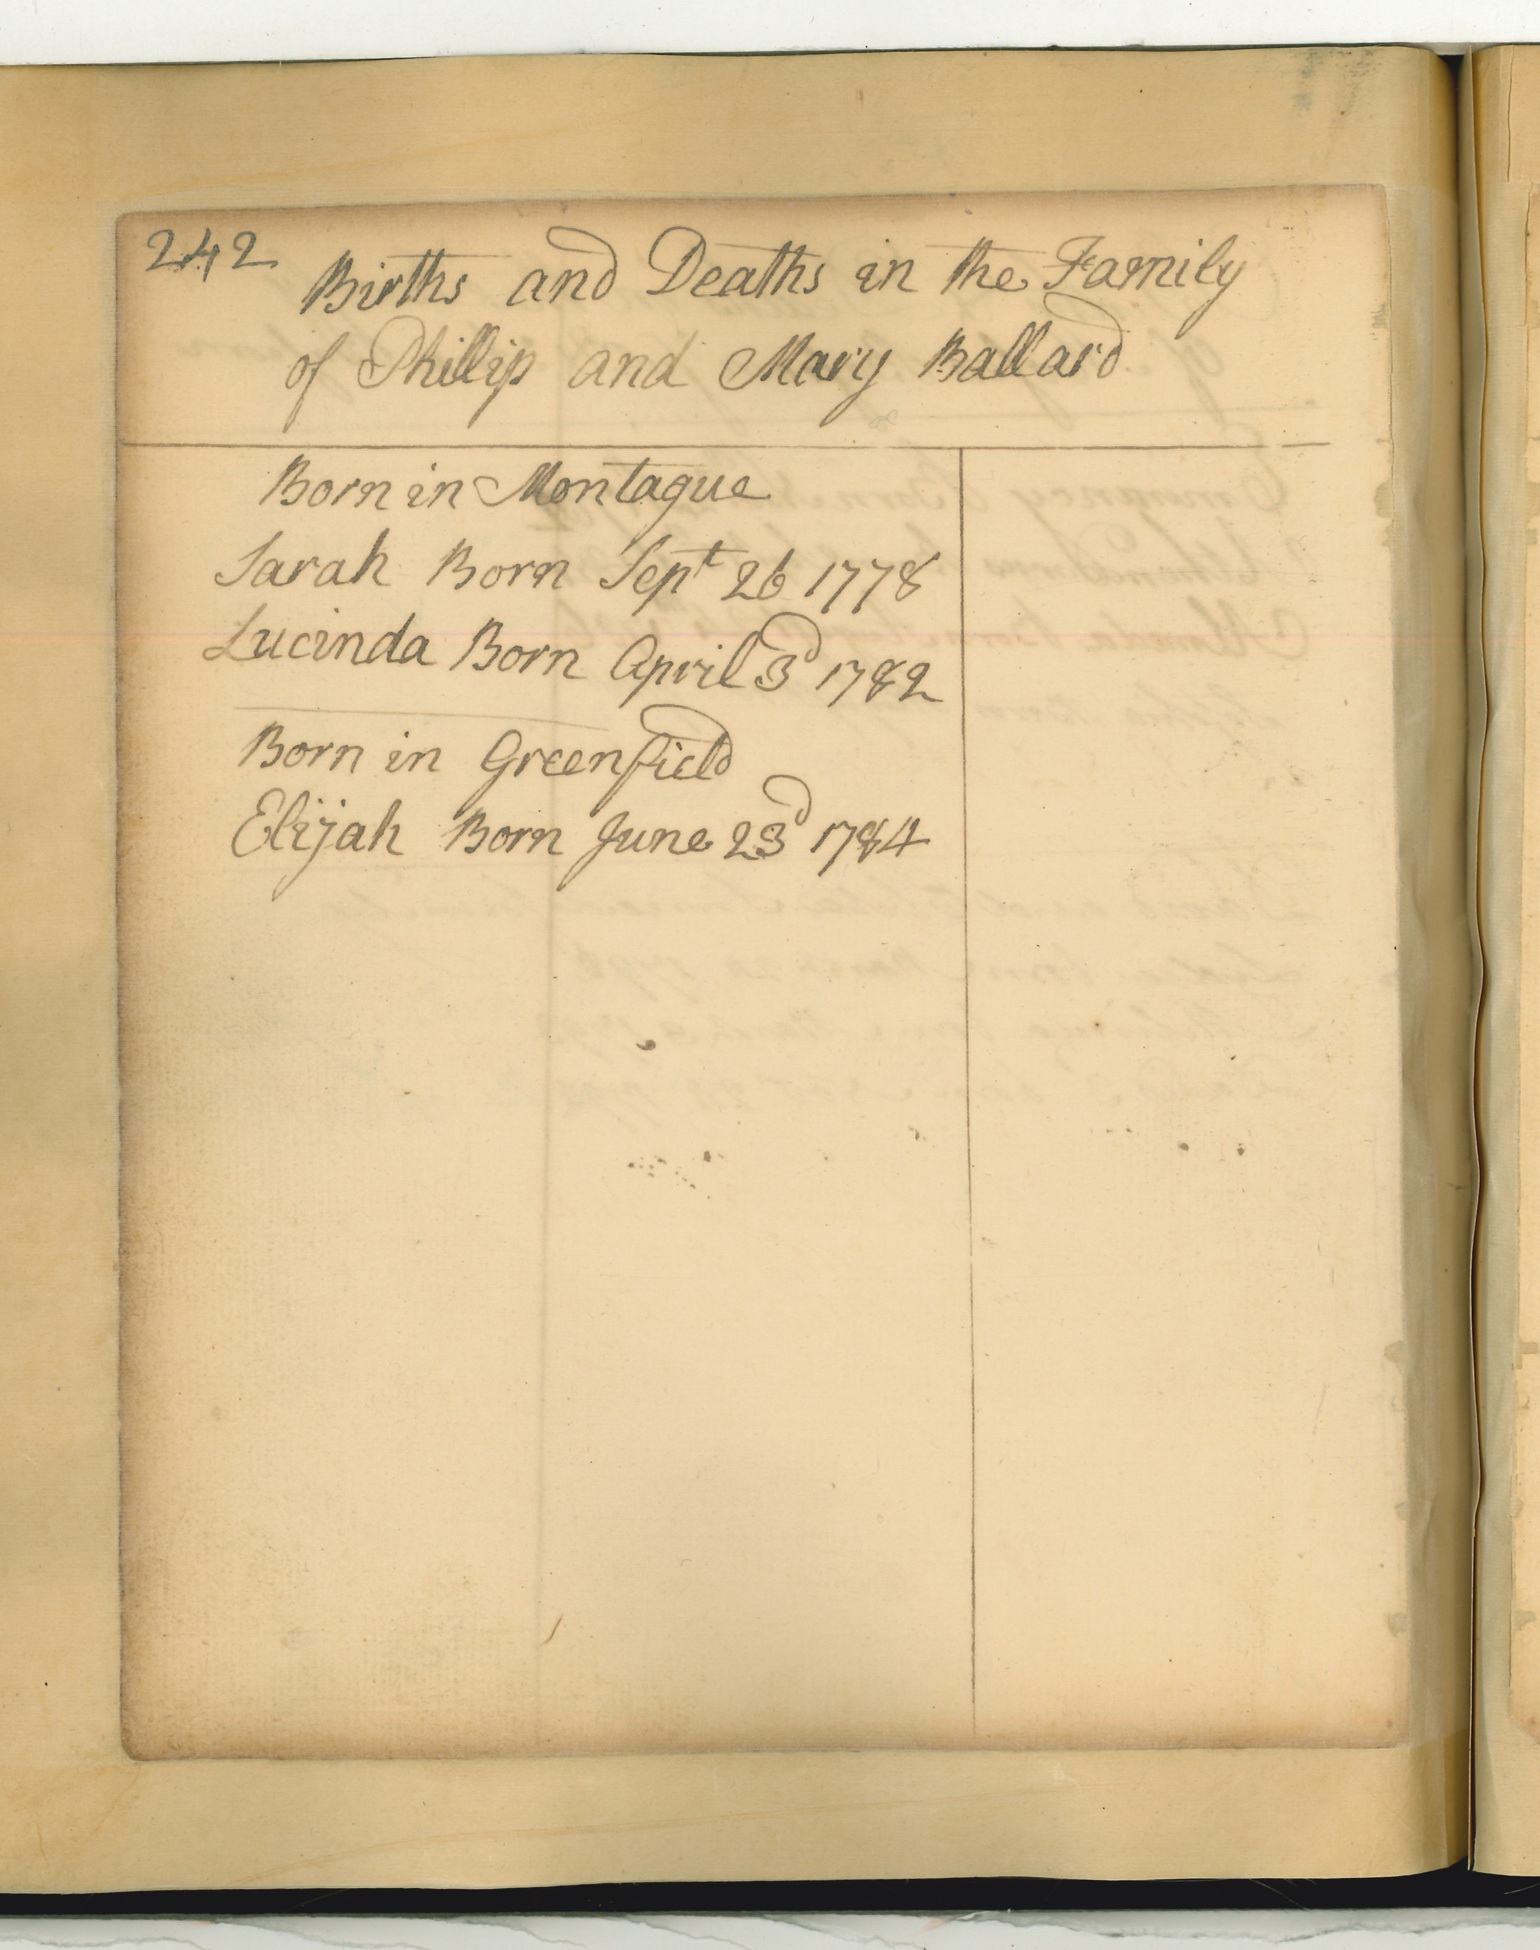 242
Births and Deaths in the Family
of Phillip and Mary Ballard
Born in Montague
Sarah Born Sept 26 1778
Lucinda Born April 3d 1782
Born in Greenfield
Elijah Born June 23d 1784